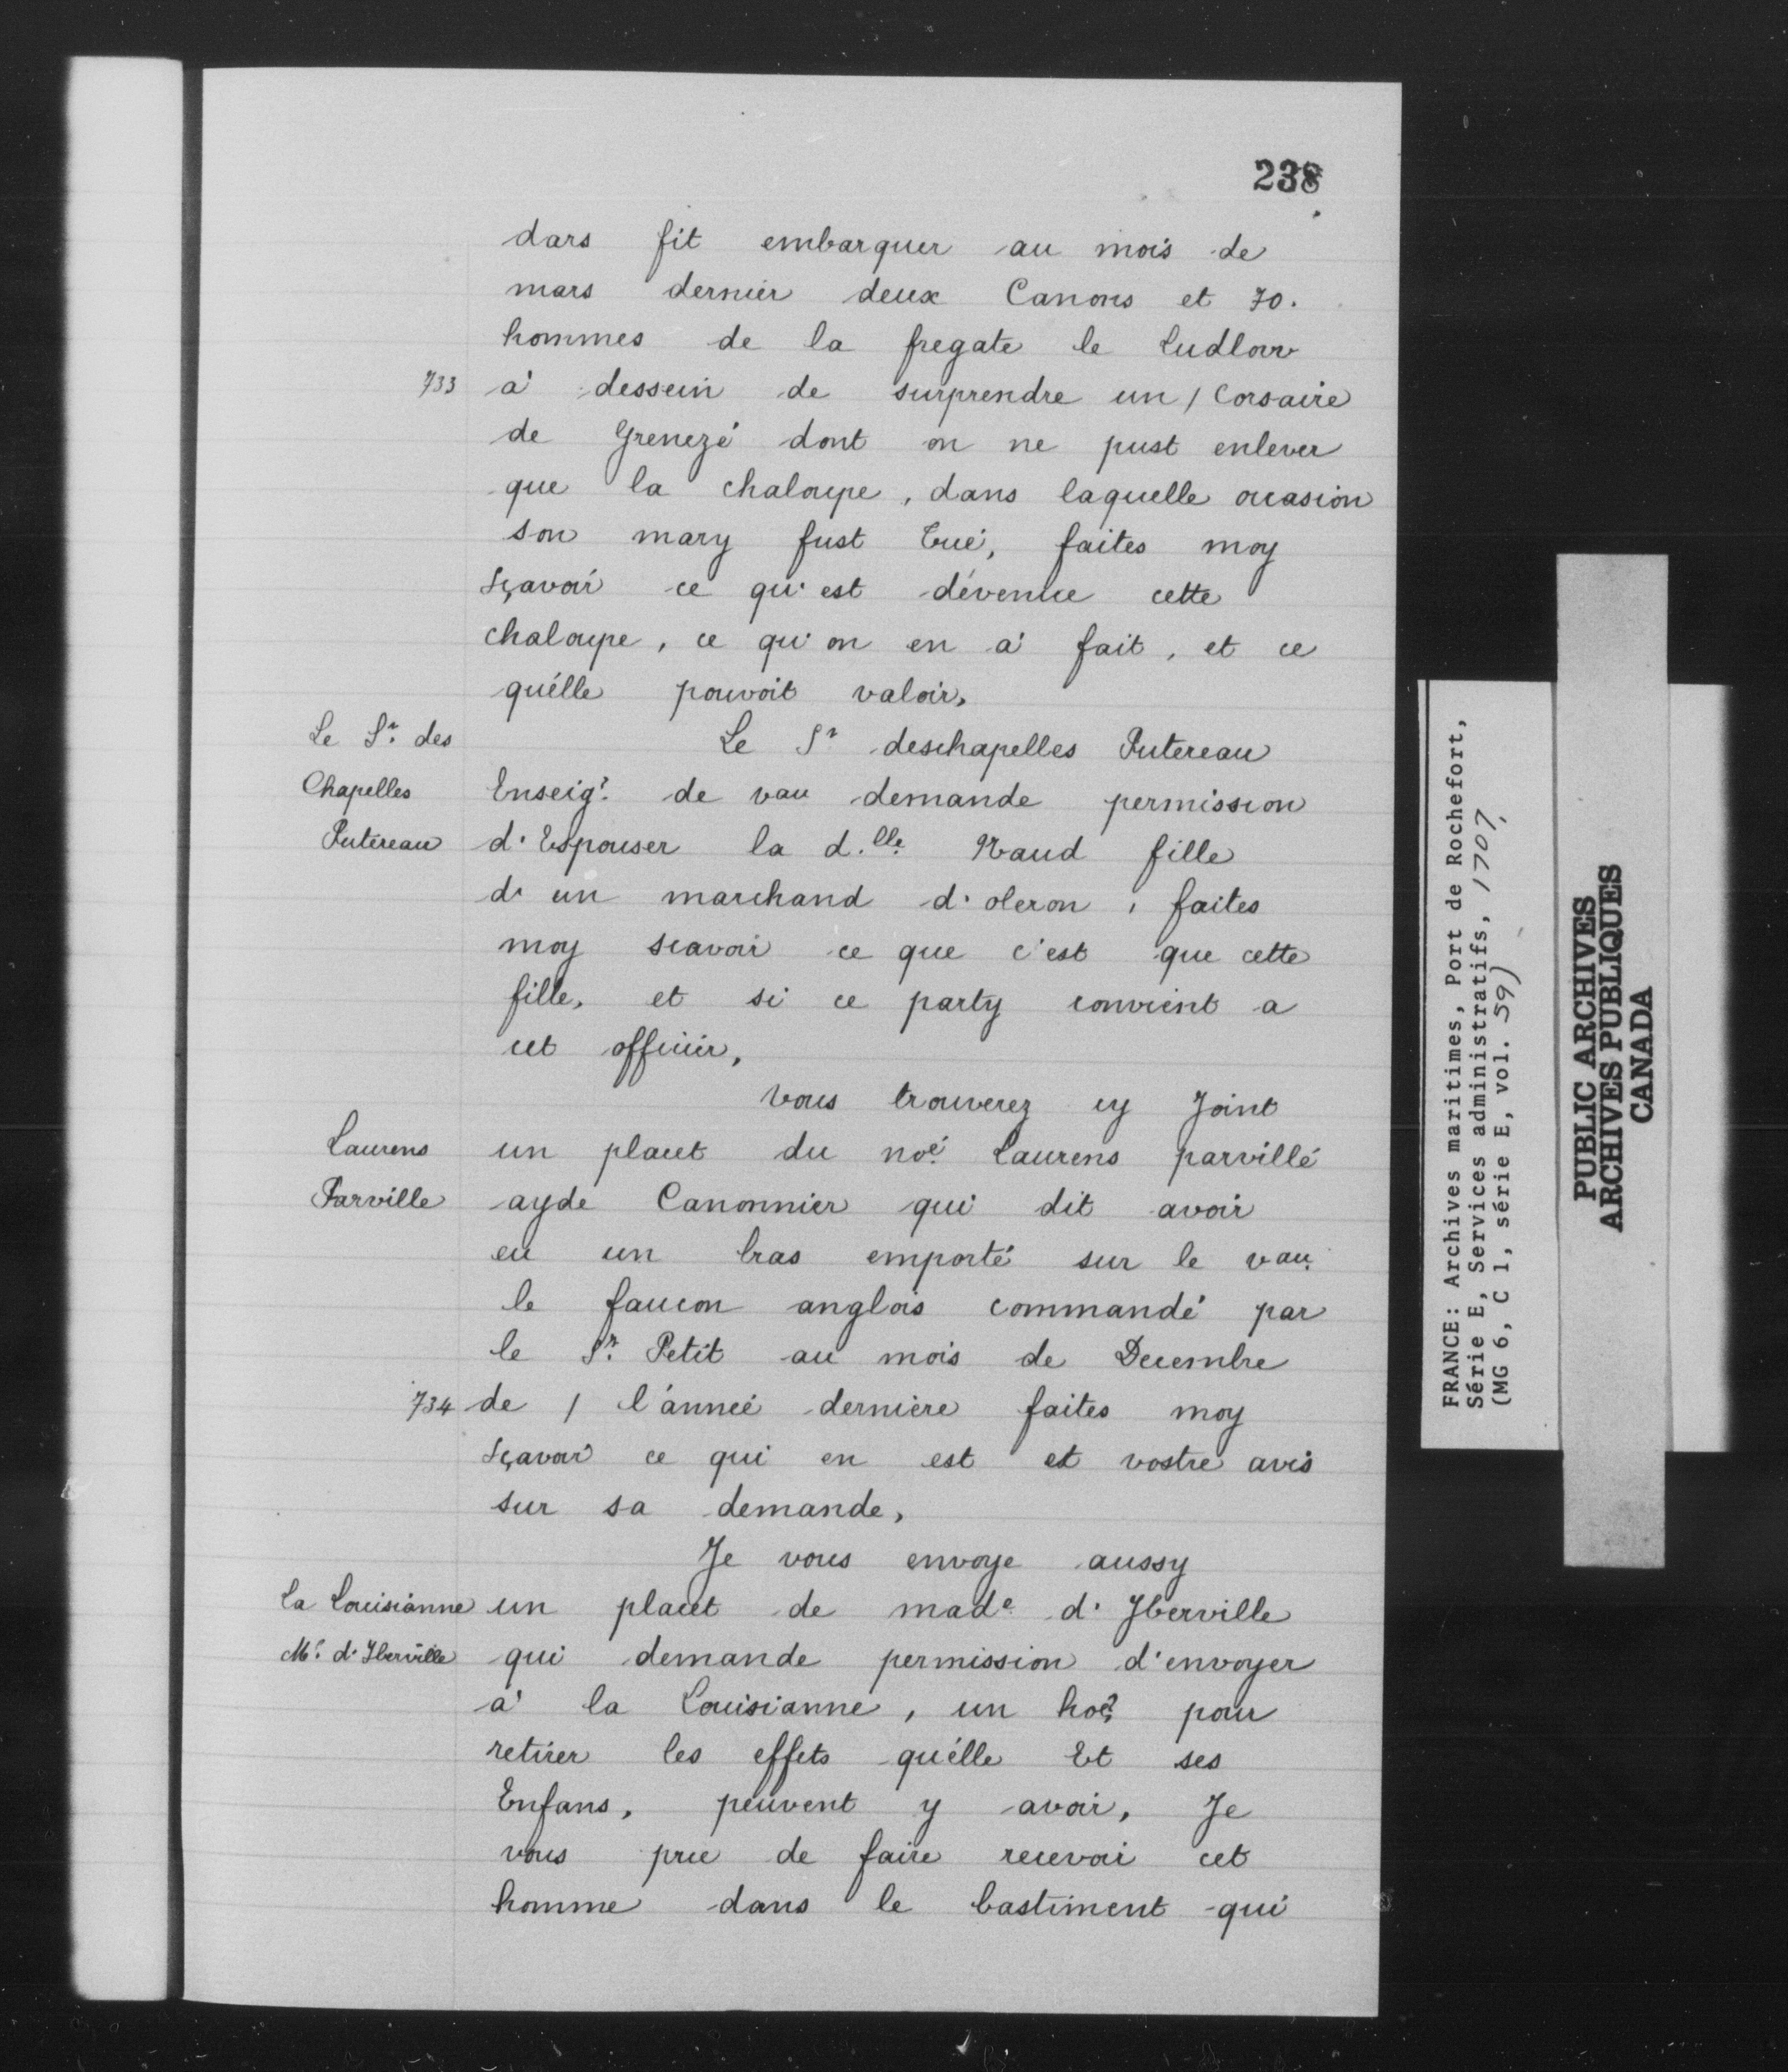 238
dars fit embarquer au mois de
mars dernier deux Canons et 70.
hommes de la fregate le Ludlow
733 à dessein de surprendre un / Corsaire
de Grenezé dont on ne pust enlever
que la chaloupe, dans laquelle occasion
son mary fust tué, faites moy
sçavoir ce qu'est dévenue cette
chaloupe, ce qu'on en à fait, et ce
qu'élle pouvoit valoir,
Le Sr. des Le Sr deschapelles Putereau
Chapelles Enseige. de vau demande permission
Putereau d'Espouser la d.lle fille
d'un marchand d'oleron, faites
moy scavoir ce que c'est que cette
fille, et si ce party convient a
cet officier,
vous trouverez cy Joint
Laurens un placet du noé. Laurens parvillé
Parville ayde Canonnier qui dit avoir
eu un bras emporté sur le vau.
le faucon anglois commandé par
le Sr. Petit au mois de Decembre
734 de / l'année derniere faites moy
sçavoir ce qui en est et vostre avis
sur sa demande,
Je vous envoye aussy
La Louisianne un placet de made d'Iberville
Me. d'Iberville qui demande permission d'envoyer
à la Louisianne, un hoe. pour
retirer les effets qu'élle Et ses
Enfans, peuvent y avoir, Je
vous prie de faire recevoir cet
homme dans le bastiment qui
FRANCE: Archives maritimes, Port de Rochefort,
Série E, Services administratifs, 1707,
(MG 6, C 1, série E, vol. 59)
PUBLIC ARCHIVES
ARCHIVES PUBLIQUES
CANADA